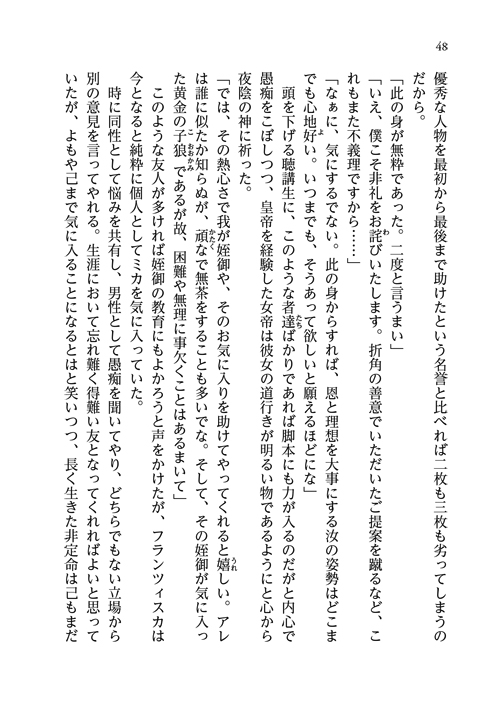 48
優秀な人物を最初から最後まで助けたという名誉と比べれば二枚も三枚も劣ってしまうの
だから。
「此の身が無粋であった。二度と言うまい」
「いえ、僕こそ非礼をお詫わびいたします。折角の善意でいただいたご提案を蹴るなど、こ
れもまた不義理ですから……」
「なぁに、気にするでない。此の身からすれば、恩と理想を大事にする汝の姿勢はどこま
でも心地好よい。いつまでも、そうあって欲しいと願えるほどにな」
頭を下げる聴講生に、このような者達たちばかりであれば脚本にも力が入るのだがと内心で
愚痴をこぼしつつ、皇帝を経験した女帝は彼女の道行きが明るい物であるようにと心から
夜陰の神に祈った。
「では、その熱心さで我が姪御や、そのお気に入りを助けてやってくれると嬉うれしい。アレ
は誰に似たか知らぬが、頑かたくなで無茶をすることも多いでな。そして、その姪御が気に入っ
た黄金の子狼こおおかみであるが故、困難や無理に事欠くことはあるまいて」
このような友人が多ければ姪御の教育にもよかろうと声をかけたが、フランツィスカは
今となると純粋に個人としてミカを気に入っていた。
時に同性として悩みを共有し、男性として愚痴を聞いてやり、どちらでもない立場から
別の意見を言ってやれる。生涯において忘れ難く得難い友となってくれればよいと思って
いたが、よもや己まで気に入ることになるとはと笑いつつ、長く生きた非定命は己もまだ